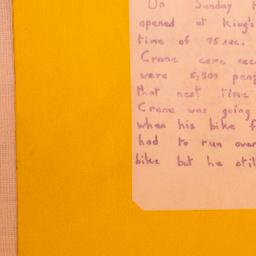 On Sunday
opened at King's
time of 75 sec.
Crane came sec
were 5,500 peop
that next time
Crane was going
when his bike f
had to run over
bike but he stil